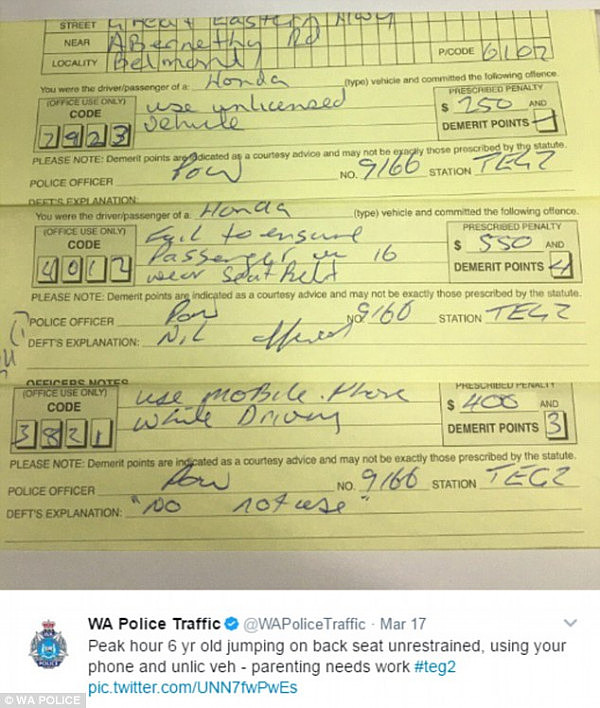 STREET Great Eastern Hwy
NEAR Abernethy Rd
LOCALITY Belmont P/CODE 6102
You were the driver/passenger of a: Honda (type) vehicle and committed the following offence.
(OFFICE USE ONLY) use unlicensed PRESCRIBED PENALTY
CODE vehicle $ 250 AND
2923 DEMERIT POINTS
PLEASE NOTE: Demerit points are indicated as a courtesy advice and may not be exactly those prescribed by the statute.
POLICE OFFICER NO. 9166 STATION TEG2
DEFT'S EXPLANATION:
You were the driver/passenger of a: Honda (type) vehicle and committed the following offence.
(OFFICE USE ONLY) Fail to ensure PRESCRIBED PENALTY
CODE Passenger 16 $ 550 AND
4012 wear seat belt DEMERIT POINTS 4
PLEASE NOTE: Demerit points are indicated as a courtesy advice and may not be exactly those prescribed by the statute.
POLICE OFFICER NO. 9166 STATION TEG2
DEFT'S EXPLANATION: NIL offered
OFFICERS NOTES
(OFFICE USE ONLY) use mobile phone PRESCRIBED PENALTY
CODE while Driving $ 400 AND
3821 DEMERIT POINTS 3
PLEASE NOTE: Demerit points are indicated as a courtesy advice and may not be exactly those prescribed by the statute.
POLICE OFFICER NO. 9166 STATION TEG2
DEFT'S EXPLANATION: "No not use"
WA Police Traffic @WAPoliceTraffic · Mar 17
Peak hour 6 yr old jumping on back seat unrestrained, using your
phone and unlic veh - parenting needs work #teg2
pic.twitter.com/UNN7fwPwEs
© WA POLICE